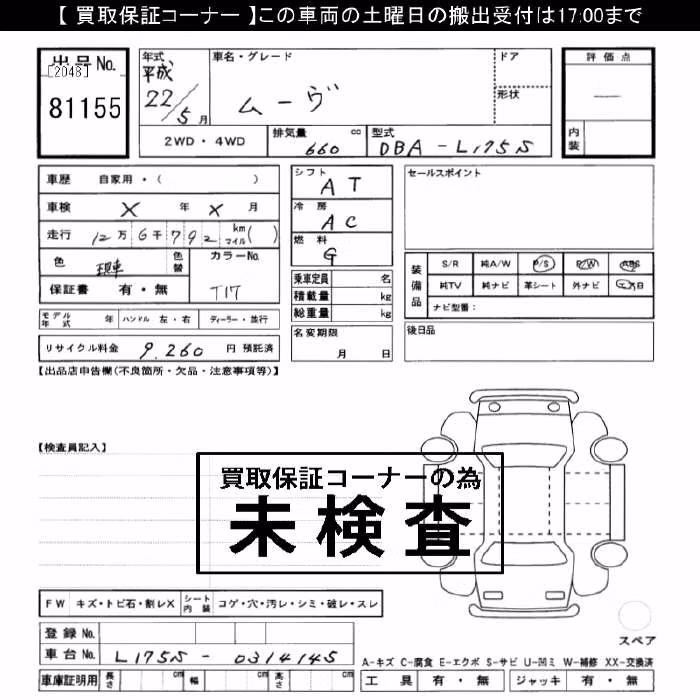 【 買取保証コーナー 】この車両の土曜日の搬出受付は17:00まで
出品No.
[2048]
81155
年式
平成
22/5月
車名・グレード
ムーヴ
ドア
形状
評価点
―
内装
2WD・4WD
排気量 660 cc
型式 DBA-L175S
車歴 自家用・( )
車検 X 年 X 月
走行 12万6千792 km マイル( )
色 現車 色替
カラーNo. T17
保証書 有・無
モデル年式 年 ハンドル 左・右 ディーラー・並行
リサイクル料金 9,260 円 預託済
シフト AT
冷房 AC
燃料 G
乗車定員 名
積載量 kg
総重量 kg
名変期限
月 日
セールスポイント
装備品
S/R 純A/W P/S P/W ABS
純TV 純ナビ 革シート 外ナビ
ナビ型番:
後日品
【出品店申告欄(不良箇所・欠品・注意事項等)】
【検査員記入】
買取保証コーナーの為
未検査
FW キズ・トビ石・割レX シート内装 コゲ・穴・汚レ・シミ・破レ・スレ
登録No.
車台No. L175S-0314145
車庫証明用 長さ cm 幅 cm 高さ cm
スペア
A-キズ C-腐食 E-エクボ S-サビ U-凹ミ W-補修 XX-交換済
工具 有・無 ジャッキ 有・無